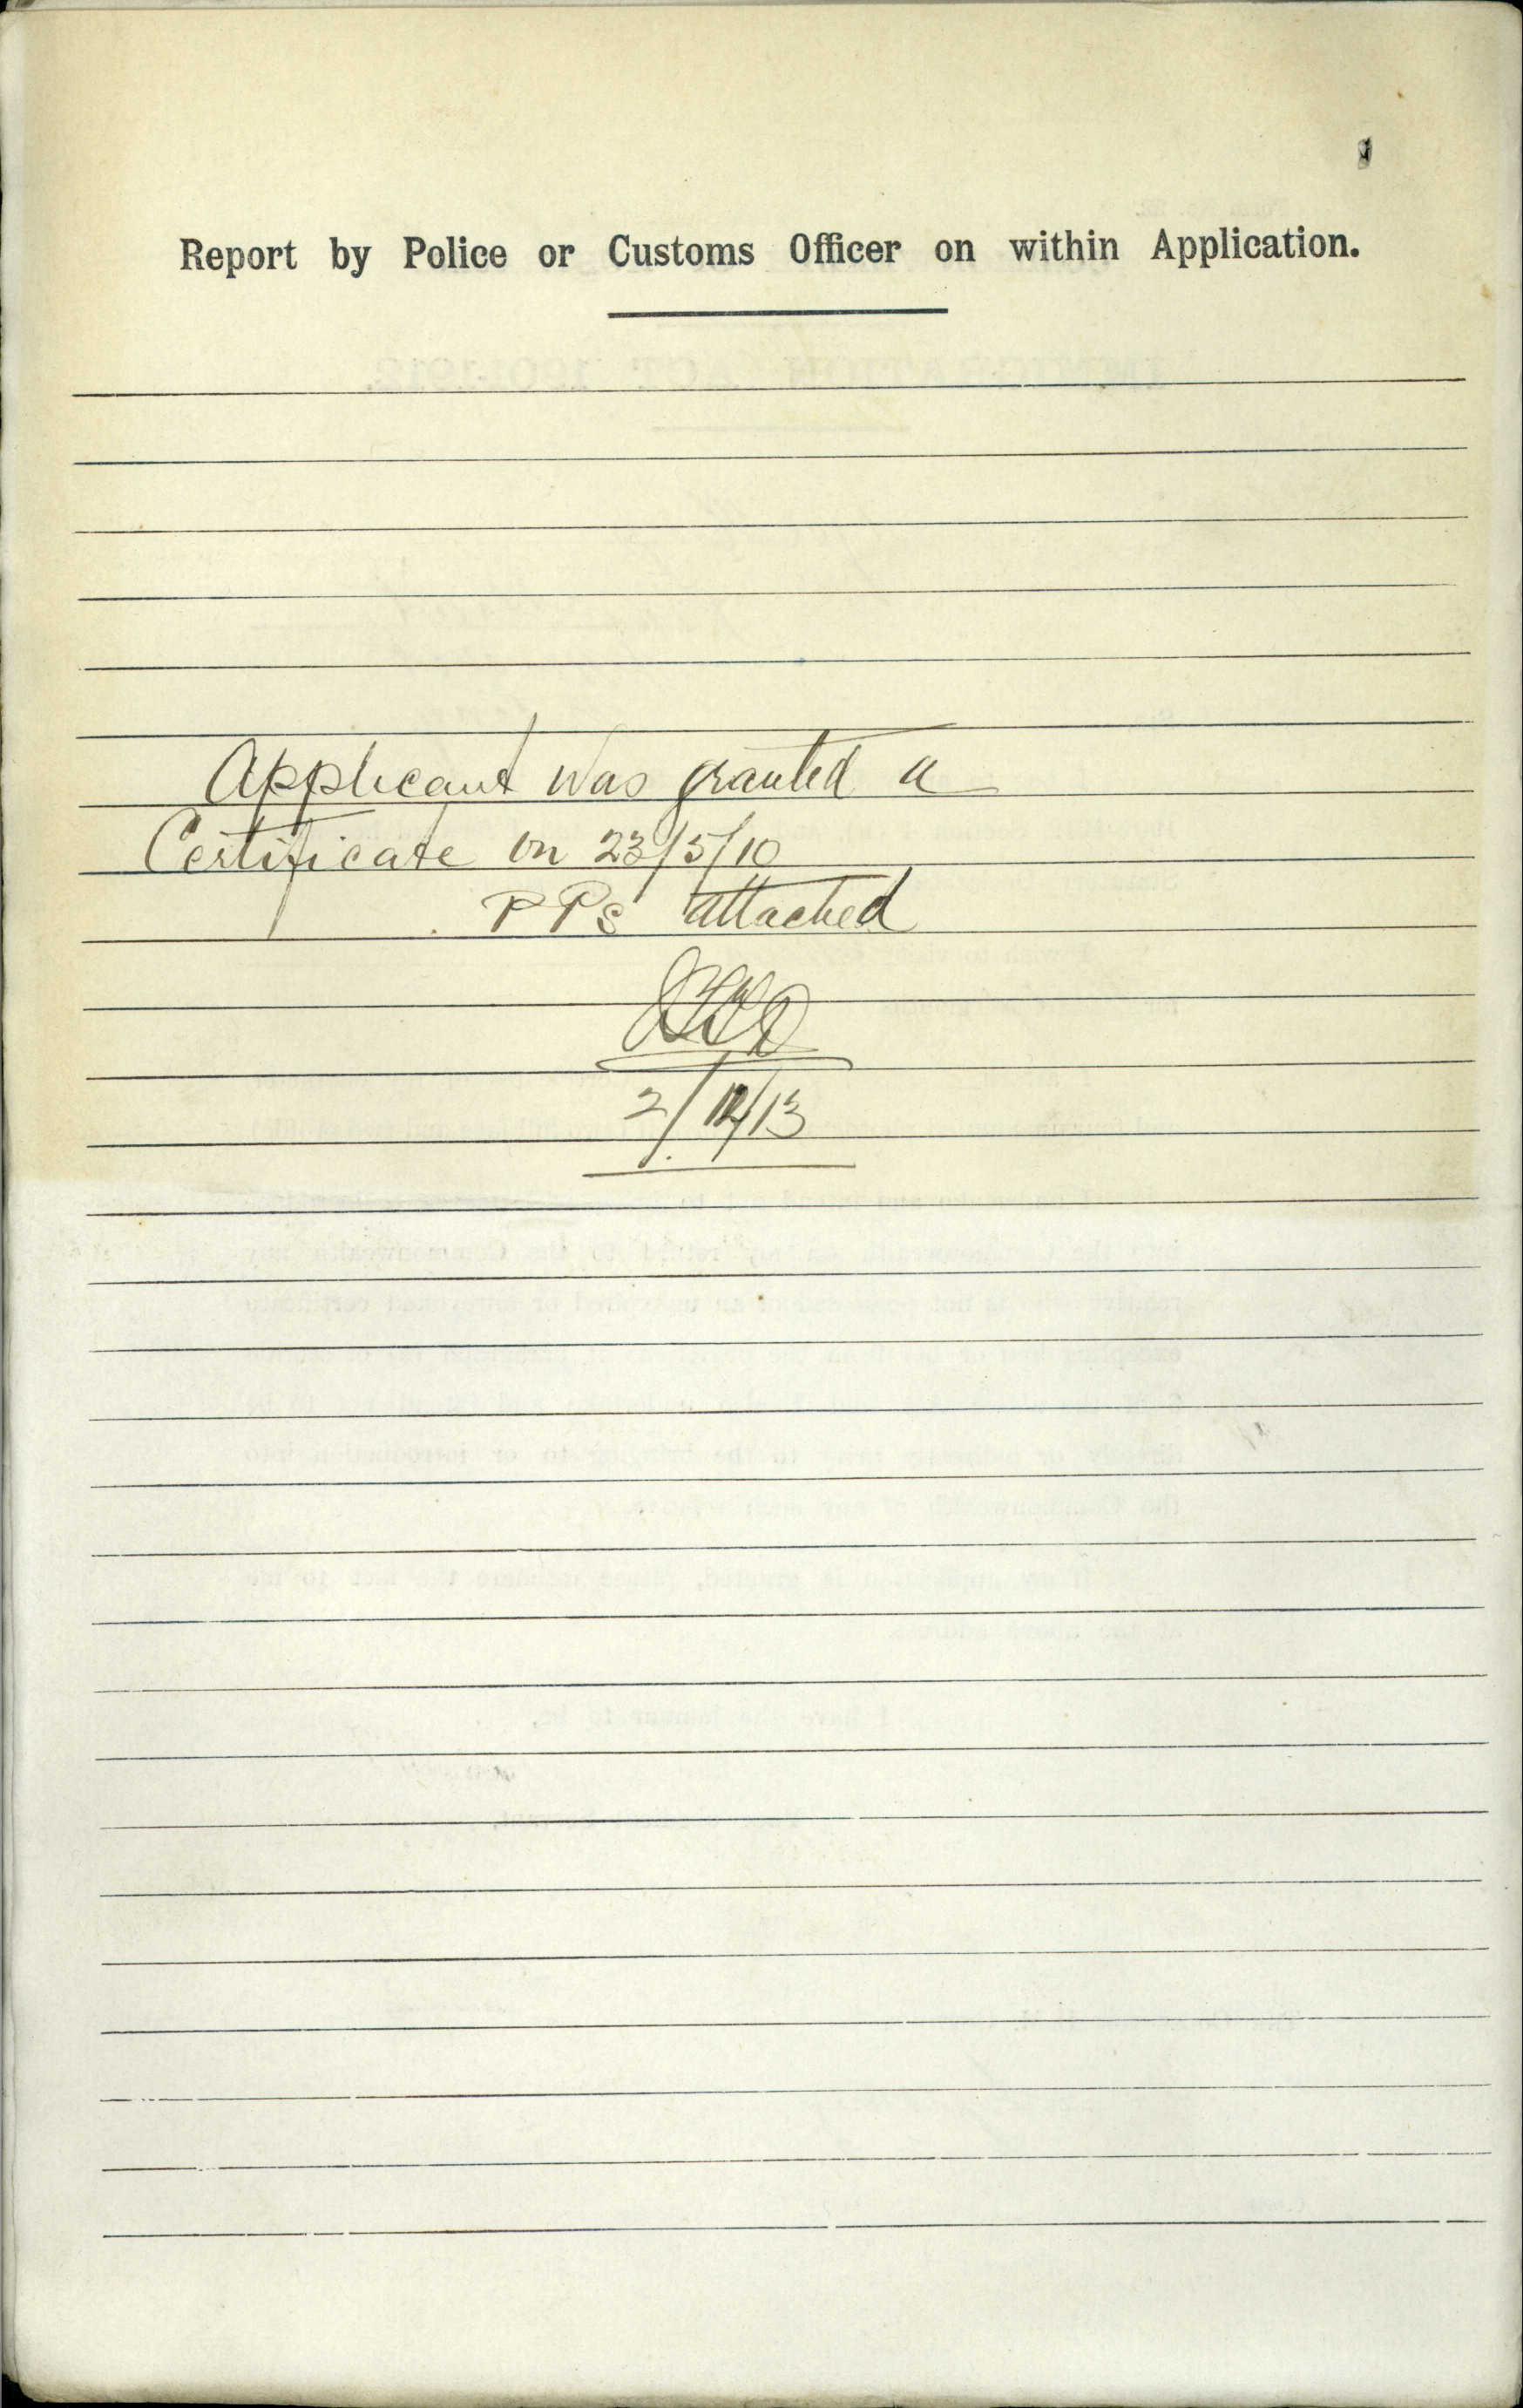 Report by Police or Customs Officer on within Application.
Applicant was granted a
Certificate on 23/5/10
PPs attached
2/12/13